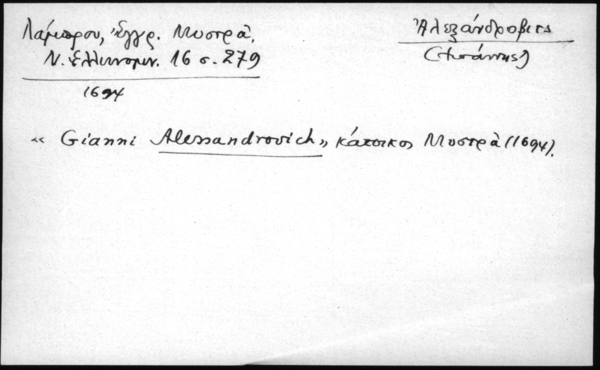 Λάμπρου, Ἔγγρ. Μυστρᾶ.
Ν. Ἑλληνομν. 16 σ. 279
1694
Ἀλεξάνδροβιτς
(Ἰωάννης)
« Gianni Alessandrovich » κάτοικος Μυστρᾶ (1694).